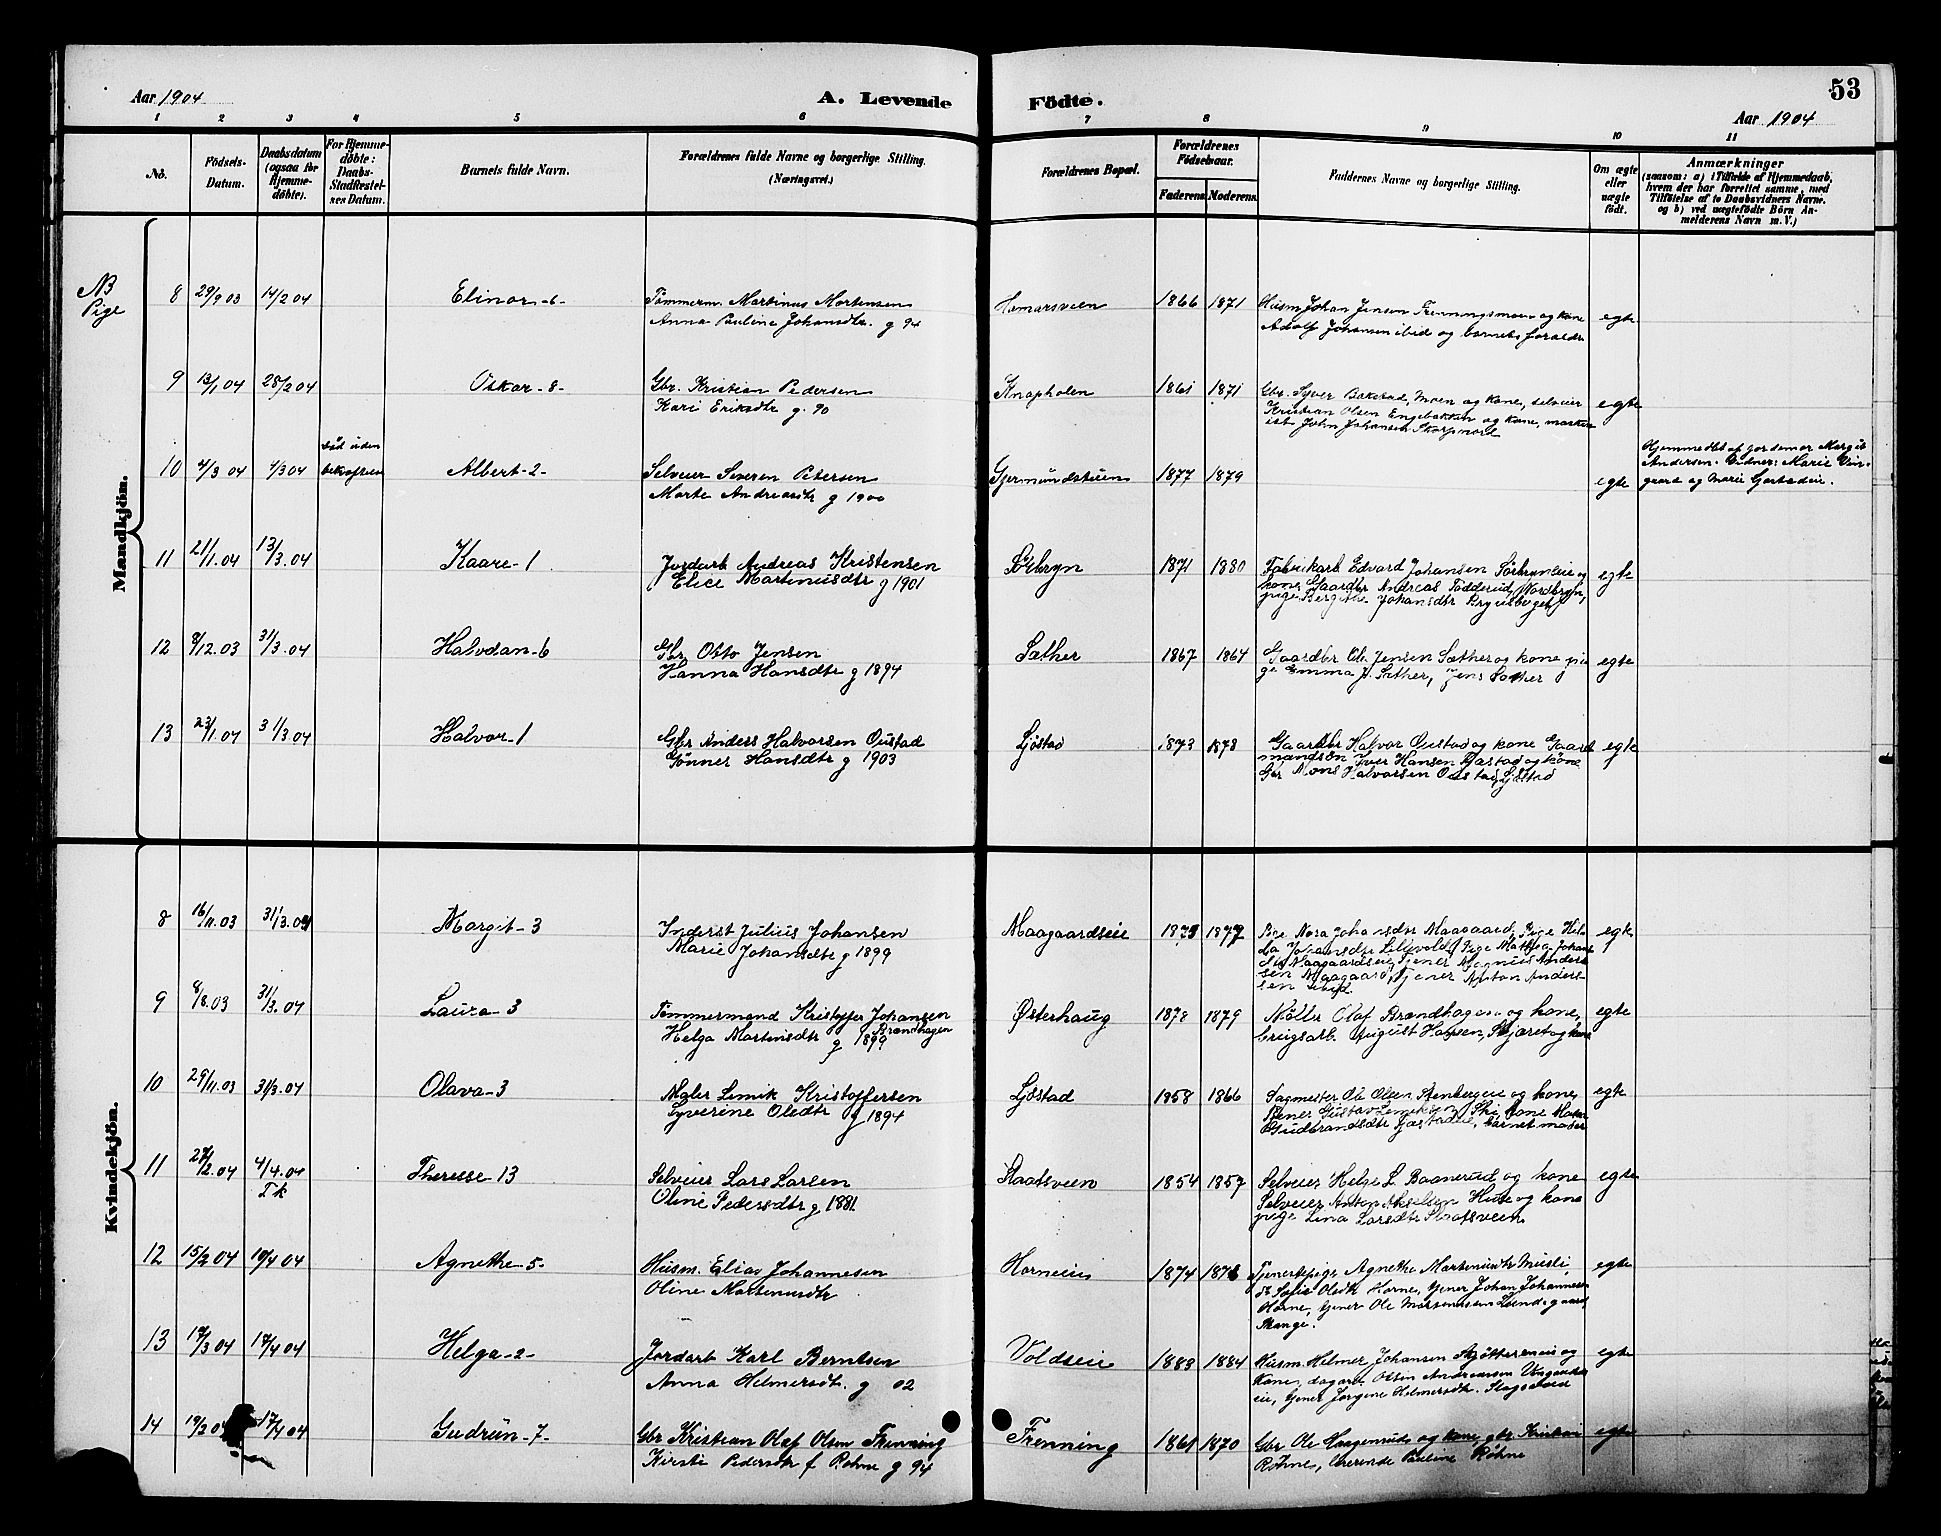 53
Aar 1904
A. Levende Födte.
Aar 1904
1 2 3 4 5 6 7 8 9 10 11
No.
Födsels-Datum.
Daabsdatum (ogsaa for Hjemme-döbte).
For Hjemme-döbte: Daabs-Stadfæstel-ses Datum.
Barnets fulde Navn.
Forældrenes fulde Navne og borgerlige Stilling.
(Næringsvei.)
Forældrenes Bopæl.
Forældrenes Födselsaar.
Faderens Moderens
Faddernes Navne og borgerlige Stilling.
Om ægte eller uægte født.
Anmærkninger
(saasom: a) i Tilfælde af Hjemmedaab,
hvem der har forrettet samme, med
Tilföielse af to Daabsvidners Navne.
og b) ved uægtefödte Börn An-
melderens Navn m. V.)
Mandkjön.
NB
Pige
8 29/9 03 14/2 04 Elinor - 6 - Tömmerm. Martinus Mortensen
Anna Pauline Johansdtr. g 94
Hamarsveien 1866 1871 Husm Johan Jensen Frenningsmoen og kone
Adolf Johansen ibid og barnets foraldr egte
9 13/1 04 28/2 04 Oskar - 8 - Gbr. Kristian Pedersen
Kari Eriksdtr g. 90
Knapholen 1861 1871 Gbr. Syver Bakstad, Moen og kone, selveier
Kristian Olsen Engebakken og kone,
John Johansen Skorpnord egte
10 4/3 04 4/3 04 död uden bekræften Albert - 2 - Selveier Severen Petersen
Marte Andreasdtr g 1900
Gjermundsteiens 1877 1879 egte
Hjemmedbt af jordemor Margit
Andersen. Vidner: Marie Vin-
gaard og Marie Gjorstadeie.
11 21/1 04 13/3 04 Kaare - 1 Jordarb Andreas Kristensen
Elise Martinusdtr g 1901
Sörbryn 1871 1880 Fabrikarb Edvard Johansen Sörbryneie og
kone, Gaardbr Andreas Fodderud, Nordbryn,
pige Bergithe Johansdtr egte
12 8/12 03 31/3 04 Halvdan - 6 Gbr Otto Jensen
Hanna Hansdtr g 1894
Sæther 1867 1864 Gaardbr Ole Jensen Sæther og kone pi-
ge Emma J. Sæther, Jens Sæther egte
13 23/1 04 31/3 04 Halvor - 1 Gbr Anders Halvorsen Oustad
Gönner Hansdtr g 1903
Ljöstad 1873 1878 Gaardbr Halvor Oustad og kone Gaard
mandsön Iver Hansen og kone
Gbr Mons Halvorsen Oustad, Ljöstad egte
Kvindekjön.
8 16/11 03 31/3 04 Margit - 3 Inderst Julius Johansen
Marie Johansdtr g 1899
Maagaardseie 1877 Pige Nora Johansdtr Maagaard, Pige Hil-
da Johansdtr Lillevold, Pige Mathea Johans
dtr Maagaardseie, Tjener Magnus Ander-
sen Maagaard, Tjener Anton Anders
sen ibid. egte
9 8/8 03 31/3 04 Laura - 3 Tömmermand Kristoffer Johansen
Brændhagen
Helga Martinsdtr g 1899
Østerhaug 1878 1879 Möller Olaf Brændhagen og kone,
brugsarb. August Hansen, Skjæret og kone egte
10 29/11 03 31/3 04 Olava - 3 Maler Limik Kristoffersen
Syverine Olsdtr g 1894
Ljöstad 1858 1866 Sagmester Ole Olsen Stenbergeie og kone,
Tjener Gustav Limiksen Ski, kone Maren
Gudbrandsdtr, barnet moder egte
11 27/2 04 4/4 04 Theresse - 13 Selveier Lars Larsen
Tk
Oline Pedersdtr g 1881
Staatsveen 1854 1857 Selveier Helge L. Baanerud og kone
Selveier Anton Akselsen Huse og kone
pige Lina Larsdtr Staatsveen egte
12 15/2 04 10/4 04 Agnethe - 5 - Husm. Elias Johannesen
Oline Martinusdtr
Horneeie 1874 Tjenestepige Agnethe Martinusdtr Musli,
do Sofie Olsdtr Horne, tjener Johan Johannesen
Horne, tjener Ole Martinussen Lundsgaard,
Stange. egte
13 19/3 04 17/4 04 Helga - 2 - Jordarb Karl Berntsen
Anna Helmersdt. g 02
Voldseie 1883 1884 Husm. Helmer Johansen og
kone, dagarb. Olsen Andreassen Vingerhs
eie, tjener Jørgine Helmersdtr. Slagsvold egte
14 19/2 04 17/4 04 Gudrun - 7 - Gbr Kristian Olaf Olsen Frenning
Kirsti Pedersdtr f Röhne g 94
Frenning 1861 1870 Gbr Ole Haagenrud og kone, gbr Kristian
Röhne, lærerinde Pauline Röhne egte